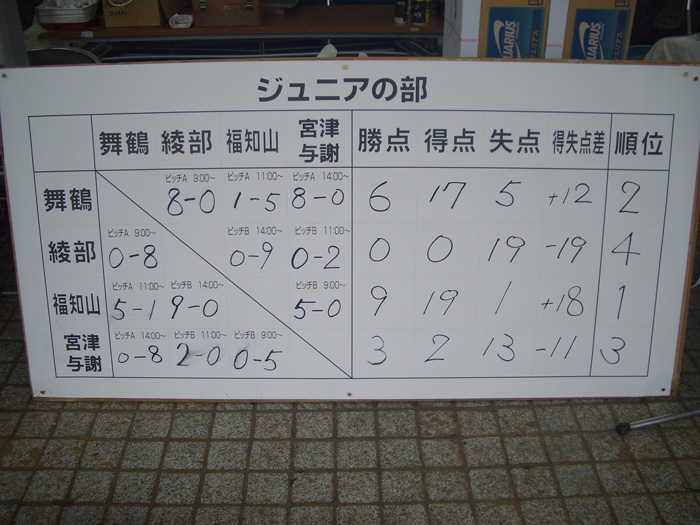 AQUARIUS
AQUARIUS
ジュニアの部
舞鶴 綾部 福知山 宮津与謝 勝点 得点 失点 得失点差 順位
ピッチA 9:00~ ピッチA 11:00~ ピッチA 14:00~
舞鶴 8-0 1-5 8-0 6 17 5 +12 2
ピッチA 9:00~ ピッチB 14:00~ ピッチB 11:00~
綾部 0-8 0-9 0-2 0 0 19 -19 4
ピッチA 11:00~ ピッチB 14:00~ ピッチB 9:00~
福知山 5-1 9-0 5-0 9 19 1 +18 1
ピッチA 14:00~ ピッチB 11:00~ ピッチB 9:00~
宮津与謝 0-8 2-0 0-5 3 2 13 -11 3